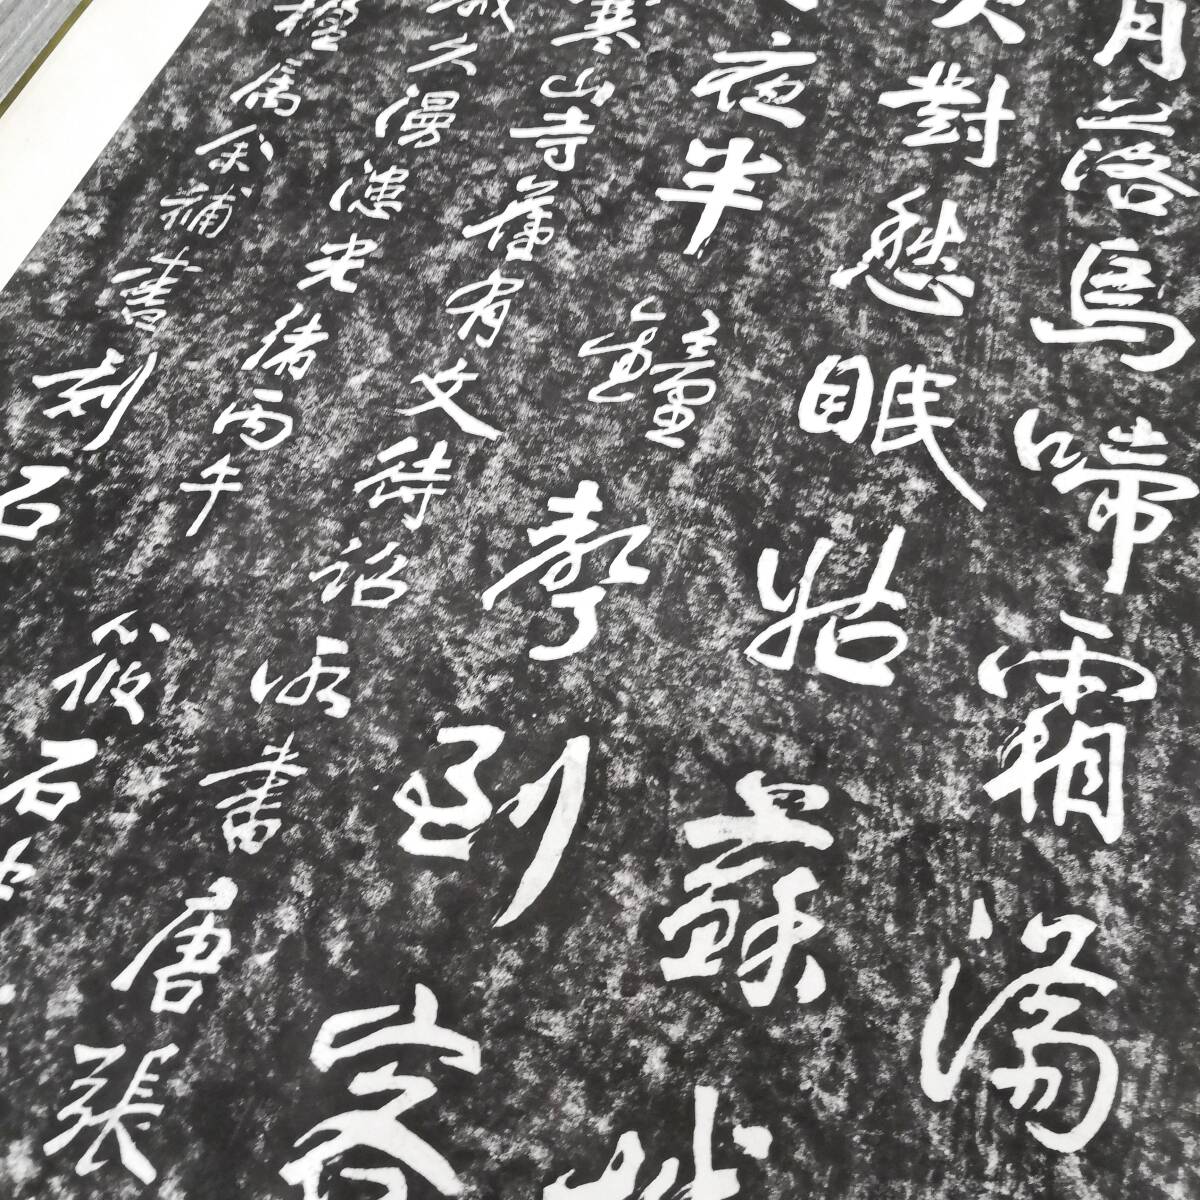 月落烏啼霜滿
火對愁眠姑蘇城
夜半鐘聲到客
寒山寺舊有文待詔所書唐張
歲久漫漶光緒丙午筱石
楹屬余補書刻石